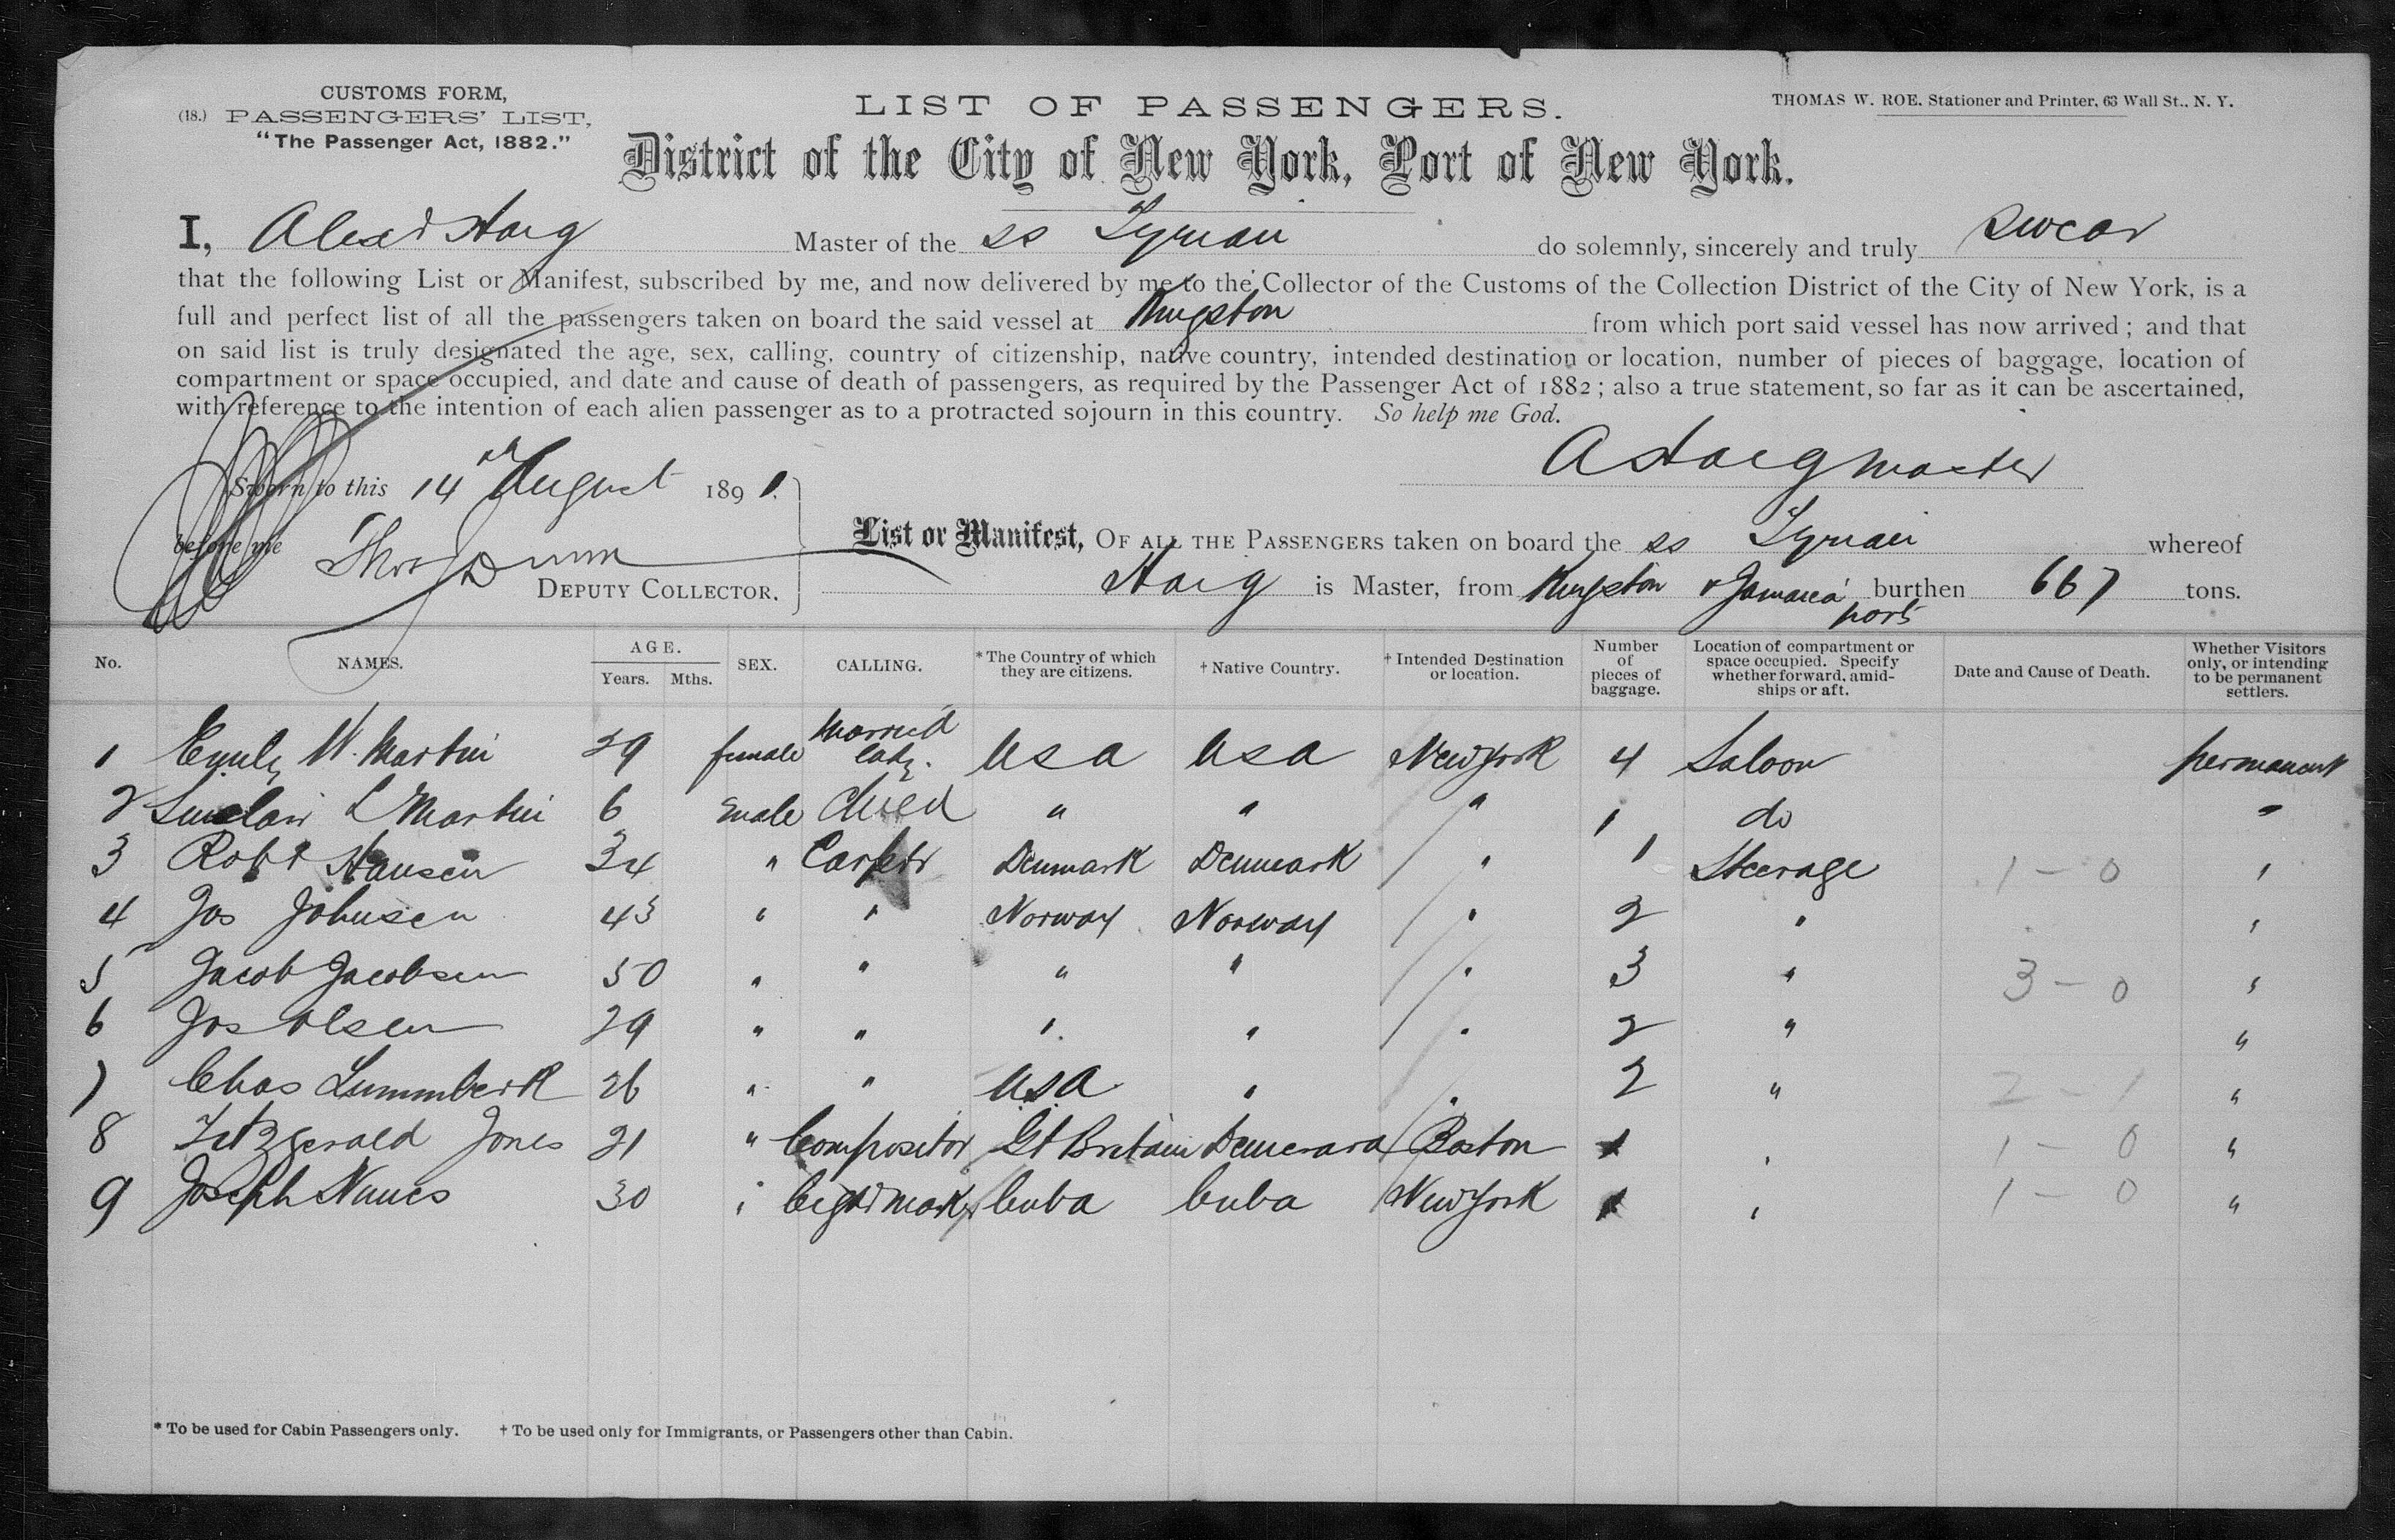 CUSTOMS FORM,
(18.) PASSENGERS' LIST,
"The Passenger Act, 1882."
LIST OF PASSENGERS.
THOMAS W. ROE, Stationer and Printer, 63 Wall St., N. Y.
District of the City of New York, Port of New York.
I, Alexr Haig Master of the ss Tyrian do solemnly, sincerely and truly swear
that the following List or Manifest, subscribed by me, and now delivered by me to the Collector of the Customs of the Collection District of the City of New York, is a
full and perfect list of all the passengers taken on board the said vessel at Kingston from which port said vessel has now arrived; and that
on said list is truly designated the age, sex, calling, country of citizenship, native country, intended destination or location, number of pieces of baggage, location of
compartment or space occupied, and date and cause of death of passengers, as required by the Passenger Act of 1882; also a true statement, so far as it can be ascertained,
with reference to the intention of each alien passenger as to a protracted sojourn in this country. So help me God.
A Haig master
Sworn to this 14th August 1891.
before me Thos Dunn
DEPUTY COLLECTOR.
List or Manifest, OF ALL THE PASSENGERS taken on board the ss Tyrian whereof
Haig is Master, from Kingston & Jamaica ports burthen 667 tons.
No. NAMES. AGE. Years. Mths. SEX. CALLING. * The Country of which they are citizens. † Native Country. † Intended Destination or location. Number of pieces of baggage. Location of compartment or space occupied. Specify whether forward, amidships or aft. Date and Cause of Death. Whether Visitors only, or intending to be permanent settlers.
1 Emily W. Martin 29 female Married lady. USA USA New York 4 Saloon permanent
2 Sinclair L Martin 6 male Child " " " 1 do "
3 Robt Hansen 34 " Carptr Denmark Denmark " 1 Steerage 1 - 0 "
4 Jos Johnsen 43 " " Norway Norway " 2 " "
5 Jacob Jacobsen 50 " " " " " 3 " 3 - 0 "
6 Jos Olsen 29 " " " " " 2 " "
7 Chas Lummberk 26 " " USA " " 2 " 2 - 1 "
8 Fitzgerald Jones 21 " Compositor Gt Britain Demerara Boston 1 " 1 - 0 "
9 Joseph Nunes 30 " Cigar maker Cuba Cuba New York 1 " 1 - 0 "
* To be used for Cabin Passengers only. † To be used only for Immigrants, or Passengers other than Cabin.